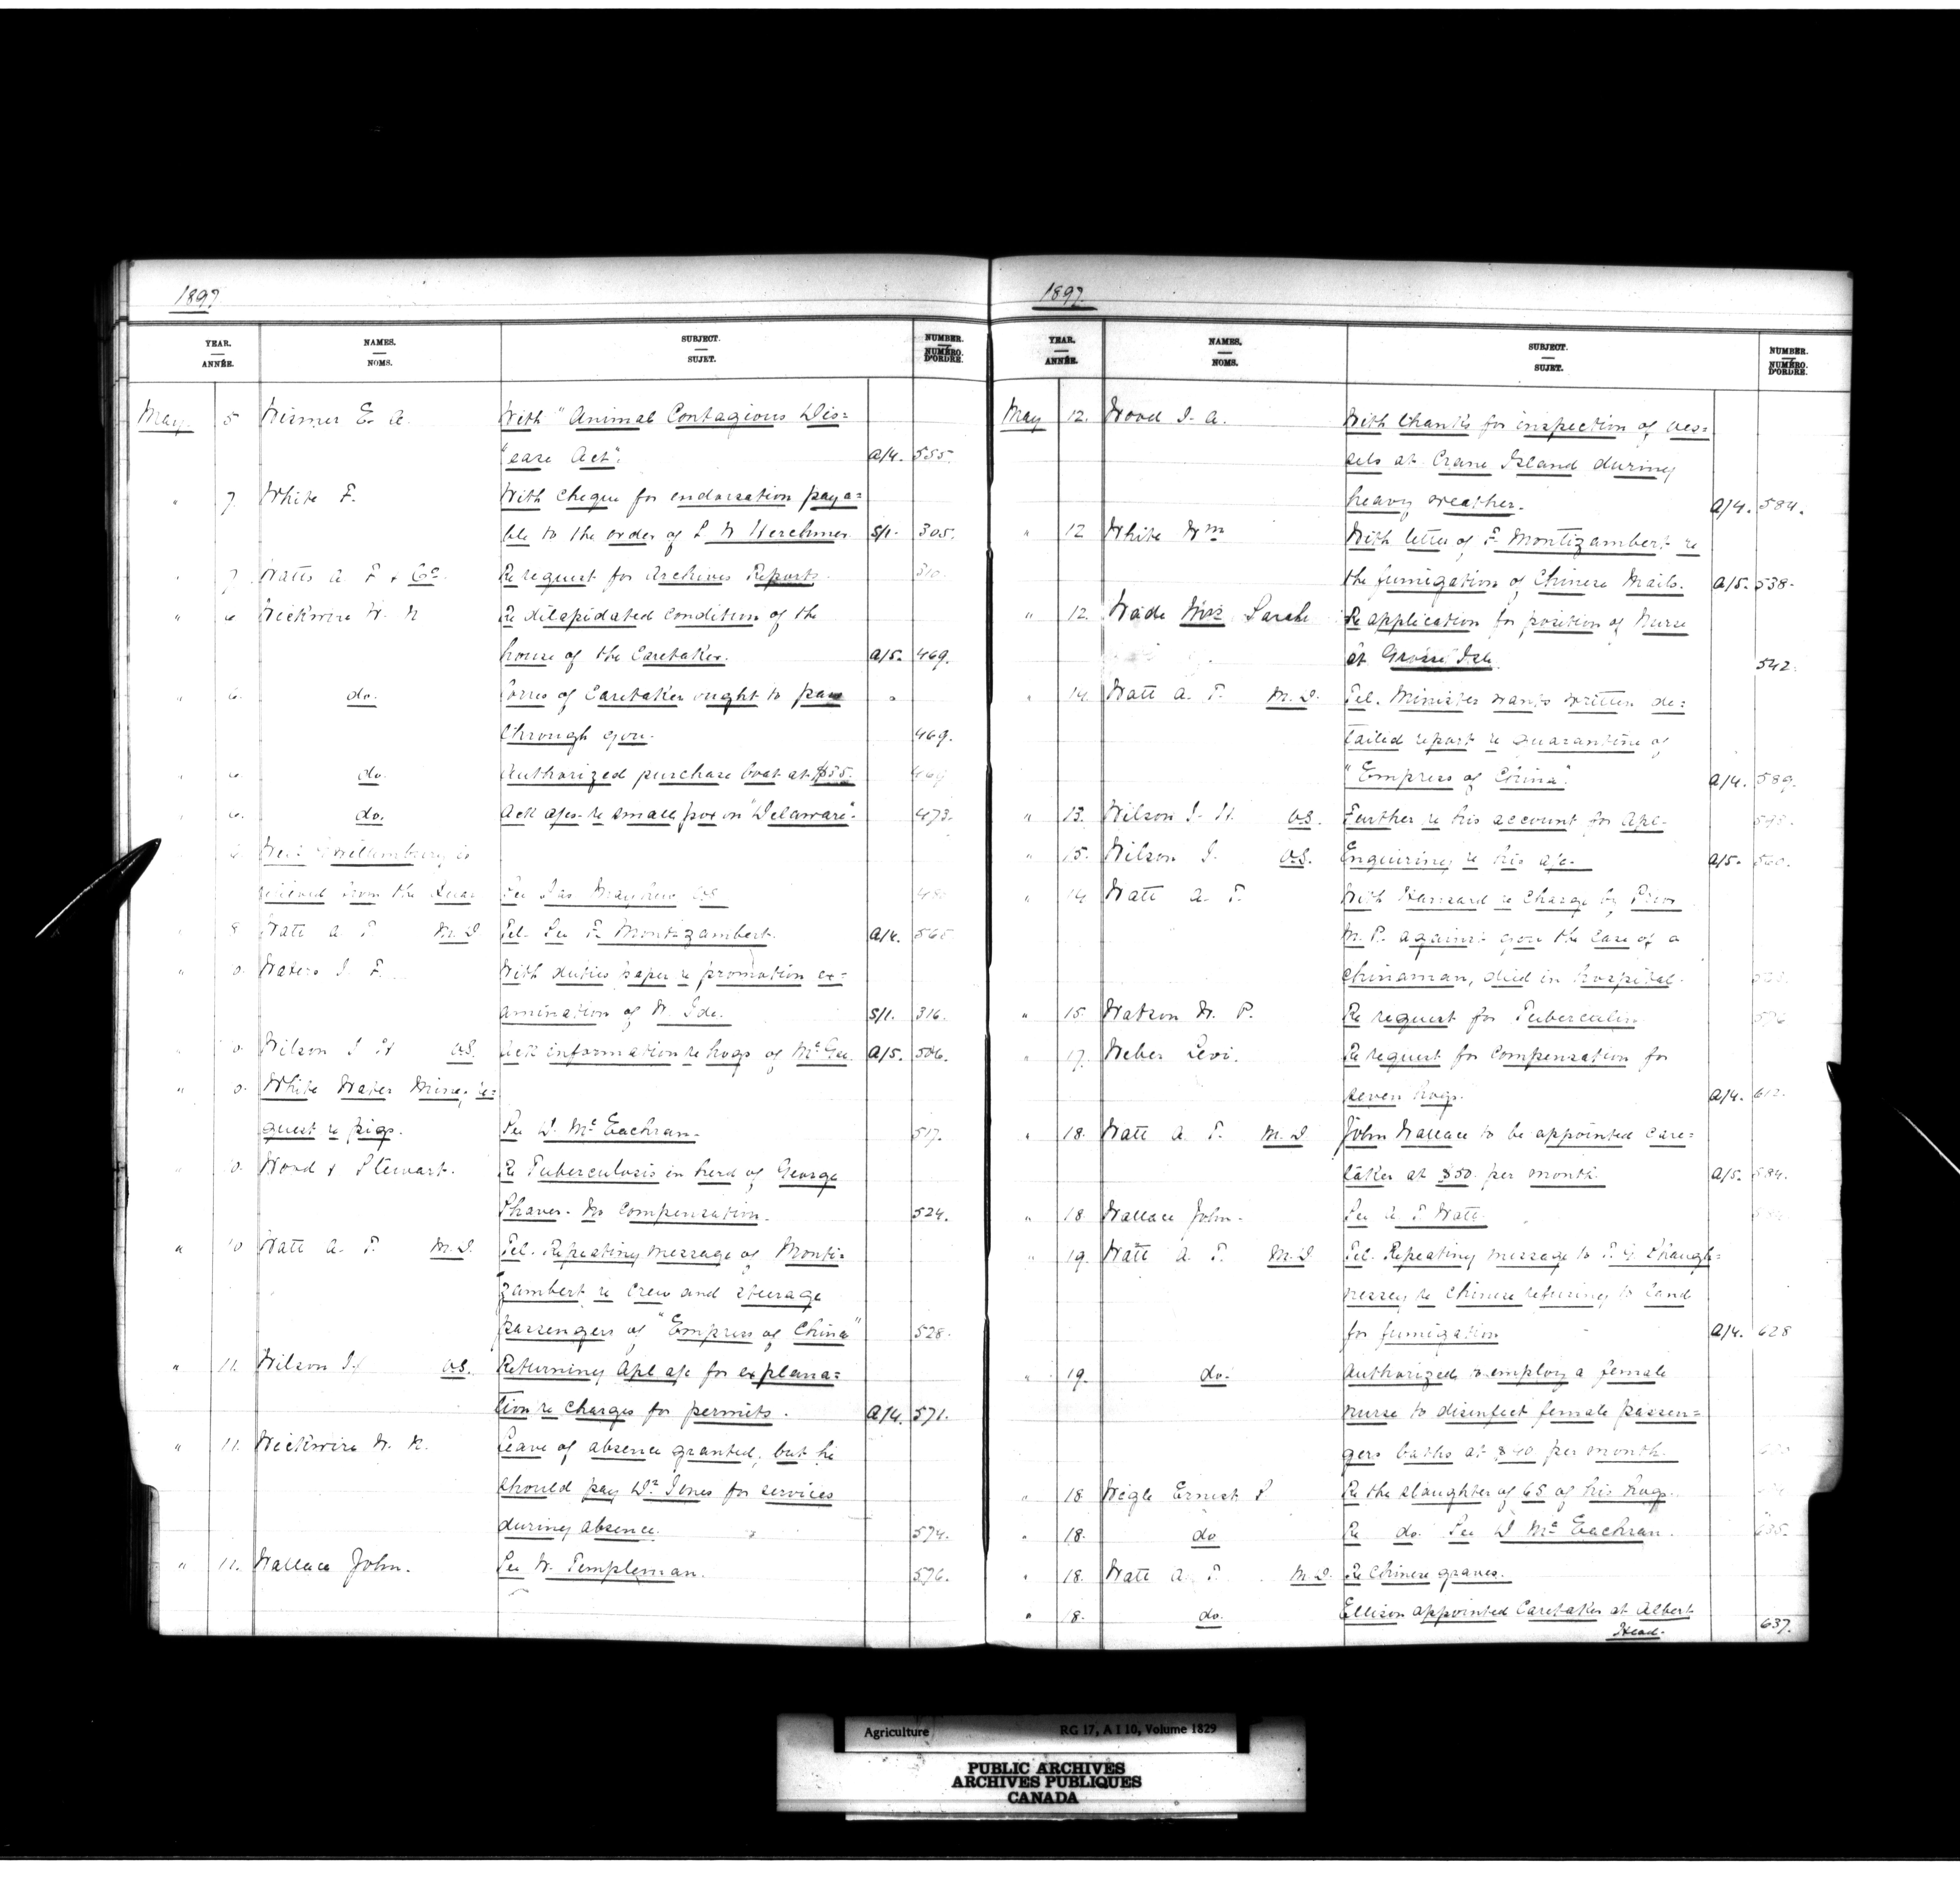 1897
YEAR. ANNÉE. NAMES. NOMS. SUBJECT. SUJET. NUMBER. NUMÉRO. D'ORDRE.
May 5 Wismer E. A. With "Animal Contagious Dis=
"ease Act". A/4. 555.
" 7. White F. With cheque for endorsation paya=
ble to the order of L W Herchmer S/1. 305.
" 7. Watts A F & Co. Re request for Archives Reports. 310.
" 6 Wickwire W. N Re dilapidated condition of the
house of the Caretaker. A/5. 469.
" 6. do. of Caretaker ought to pass "
through gov. 469.
" 6. do. Authorized purchase boat at $35. 469
" 6. do. Ack a/cs. re small pox on "Delaware". 473.
" 6.
from the Per Jas Mayhew VS
" 8 Watt A T M.D Tel. Per F. Montizambert. A/4. 565
" Waters J. F. With duties paper re promotion ex=
amination of W. Ide. S/1. 316.
" Wilson J H V.S. Ack information re hogs of McGee. A/5. 506.
" White Water Mines, re=
quest re pigs. Per D. McEachran. 517.
" Wood & Stewart. Re Tuberculosis in herd of George
Shaver. No compensation. 524.
" 10 Watt A. T. M.D. Tel. Repeating message of Monti=
zambert re crew and steerage
passengers of "Empress of China" 528.
" 11. Wilson J. V.S. Returning Apl a/c for explana=
tion re charges for permits. A/4. 571.
" 11. Wickwire W. N. Leave of absence granted, but he
should pay Dr. Jones for services
during absence. 574.
" 11. Wallace John. Per W. Templeman. 576.
1897
YEAR. ANNÉE. NAMES. NOMS. SUBJECT. SUJET. NUMBER. NUMÉRO. D'ORDRE.
May 12. Wood J. A. With thanks for inspection of ves=
sels at Crane Island during
heavy weather. A/4. 584.
" 12 White Wm With letter of F. Montizambert re
the fumigation of Chinese Mails. A/5. 538.
" 12. Wade Miss Sarah Re application for position of Nurse
at Grosse Isle. 542.
" 14. Watt A. T. M.D. Tel. Minister wants written de=
tailed report re quarantine of
"Empress of China". A/4. 589.
" 13. Wilson J. H. V.S. Further re his account for Apl. 595.
" 15. Wilson J. V.S. Enquiring re his a/c. A/5. 560.
" 14 Watt A. T. With Hansard re charge by Prior
M.P. against gov. the case of a
Chinaman, died in hospital.
" 15. Watson W. P. Re request for Tuberculin 576
" 17. Weber Levi. Re request for compensation for
seven hogs. A/4. 612.
" 18. Watt A. T. M.D John Wallace to be appointed care=
taker at $50. per month. A/5. 584.
" 18 Wallace John. Per A T Watt. 584
" 19. Watt A T M.D Tel. Repeating message to
re Chinese refusing to land
for fumigation A/4. 628
" 19. do. Authorized to employ a female
nurse to disinfect female passen=
gers baths at $40 per month.
" 18 Wigle Ernest S Re the slaughter of 65 of his hogs.
" 18. do Re do. Per D McEachran. 635.
" 18. Watt A. T. M.D. Re Chinese graves.
" 18. do. Ellison appointed Caretaker at Albert
Head. 637.
Agriculture RG 17, A I 10, Volume 1829
PUBLIC ARCHIVES
ARCHIVES PUBLIQUES
CANADA